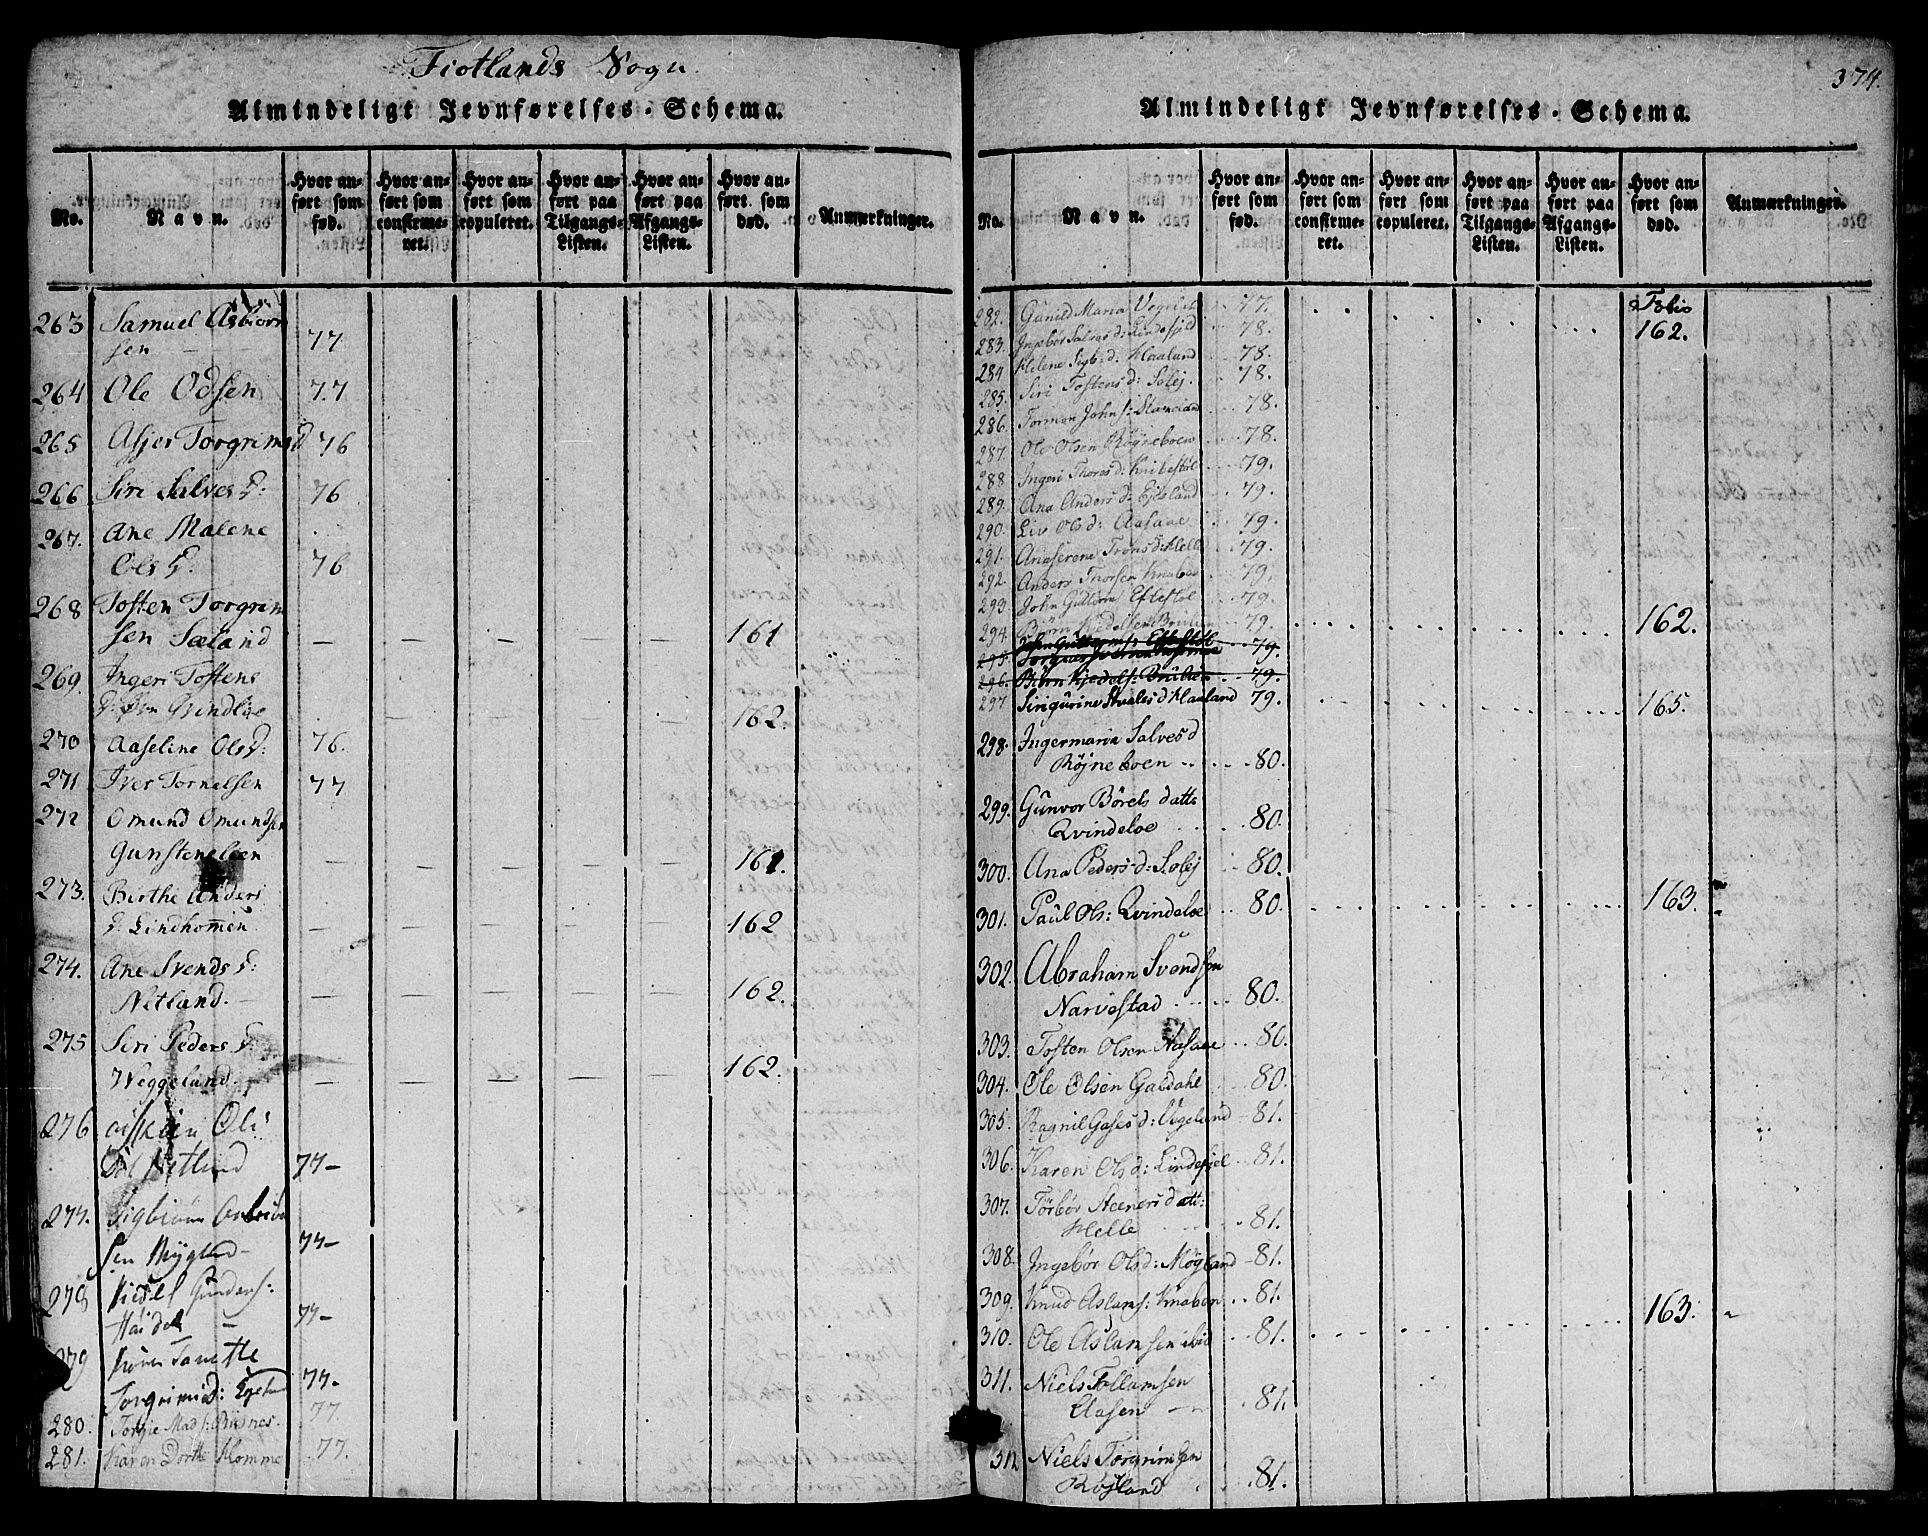 Fiotlands Sogn
Almindeligt Jevnførelses-Schema.
No.
Navn.
Hvor anført som fød.
Hvor anført som confirmeret.
Hvor anført som copuleret.
Hvor anført paa Tilgangs-Listen.
Hvor anført paa Afgangs-Listen.
Hvor anført som død.
Anmærkninger.
263 Samuel Asbiørn
sen 77
264 Ole Odsen 77
265 Asjer Torgrims d 76
266 Siri Salves d: 76
267. Ane Malene
Ols d. 76
268 Tosten Torgrim
sen Sæland — — — — — 161
269. Ingeri Tostens
d: Qvindloe — — — — 162.
270 Aaseline Ols d: 76.
271 Iver Tornelsen 77
272 Omund Omundsen
Gunsteneleen — — — — — 161.
273. Birthe Anders
d. Lindhommen — — — — — 162
274. Ane Svends d:
Netland. — — — — — 162.
275 Siri Peders d:
Weggeland. — — — — — 162.
276 Ols
Netland 77-
277. Sigbiørn Asbiørn
sen Myglnd 77-
278 Kidel Gunders:
77-
279 Tanette
Torgrims d: 77.
280. Torgie Mads: 77
281. Karen Dorthe Homme 77.
374.
Almindeligt Jevnførelses-Schema.
No.
Navn.
Hvor anført som fød.
Hvor anført som confirmeret.
Hvor anført som copuleret.
Hvor anført paa Tilgangs-Listen.
Hvor anført paa Afgangs-Listen.
Hvor anført som død.
Anmærkninger.
Folio
282. Gunild Maria 77. 162.
283. Ingebor Salves d: Lindefield 78.
284 Helene Sigb: d: Haaland 78.
285. Siri Tostens d: Solej. 78.
286. Tormon John s: 78.
287. Ole Olsen Røyneboen 78.
288 Ingeri Thores d: Knibestøl 79.
289. Ana Anders d: Ejesland 79.
290. Liv Ols d: Aasaae 79.
291. Anaserene Trons d: Helle 79.
292. Anders Thorsen Knaben 79.
293. John Guttorm Eftestøl 79.
294. Biørn Kjedelsen 79. 162.
295. John Guttorms: Eftestøl 79.
296. Biörn Kjedels: 79.
297 Sirigurine Avales d Haaland 79. 165.
298. Ingermaria Salves d
Röjneboen 80.
299. Gunvor Börels datt
Qvindeloe 80.
300. Ana Peders d: Solej 80.
301. Paul Ols: Qvindeloe 80. 163.
302. Abraham Svendsen
Narvestad 80.
303. Tosten Olsen Aasaae 80.
304. Ole Olsen Gaedahl 80.
305. Ragnil Gases d: Vegeland 81.
306. Karen Ols d: Lindefjel 81.
307. Törbör Steeners datt:
Helle 81.
308. Ingebör Ols d: Mögland 81.
309. Knud Aslams: Knaben 81.
310. Ole Aslamsen ibid 81. 163.
311. Niels Tollamsen
Aasen 81.
312 Niels Torgrimsen
Røjland 81.